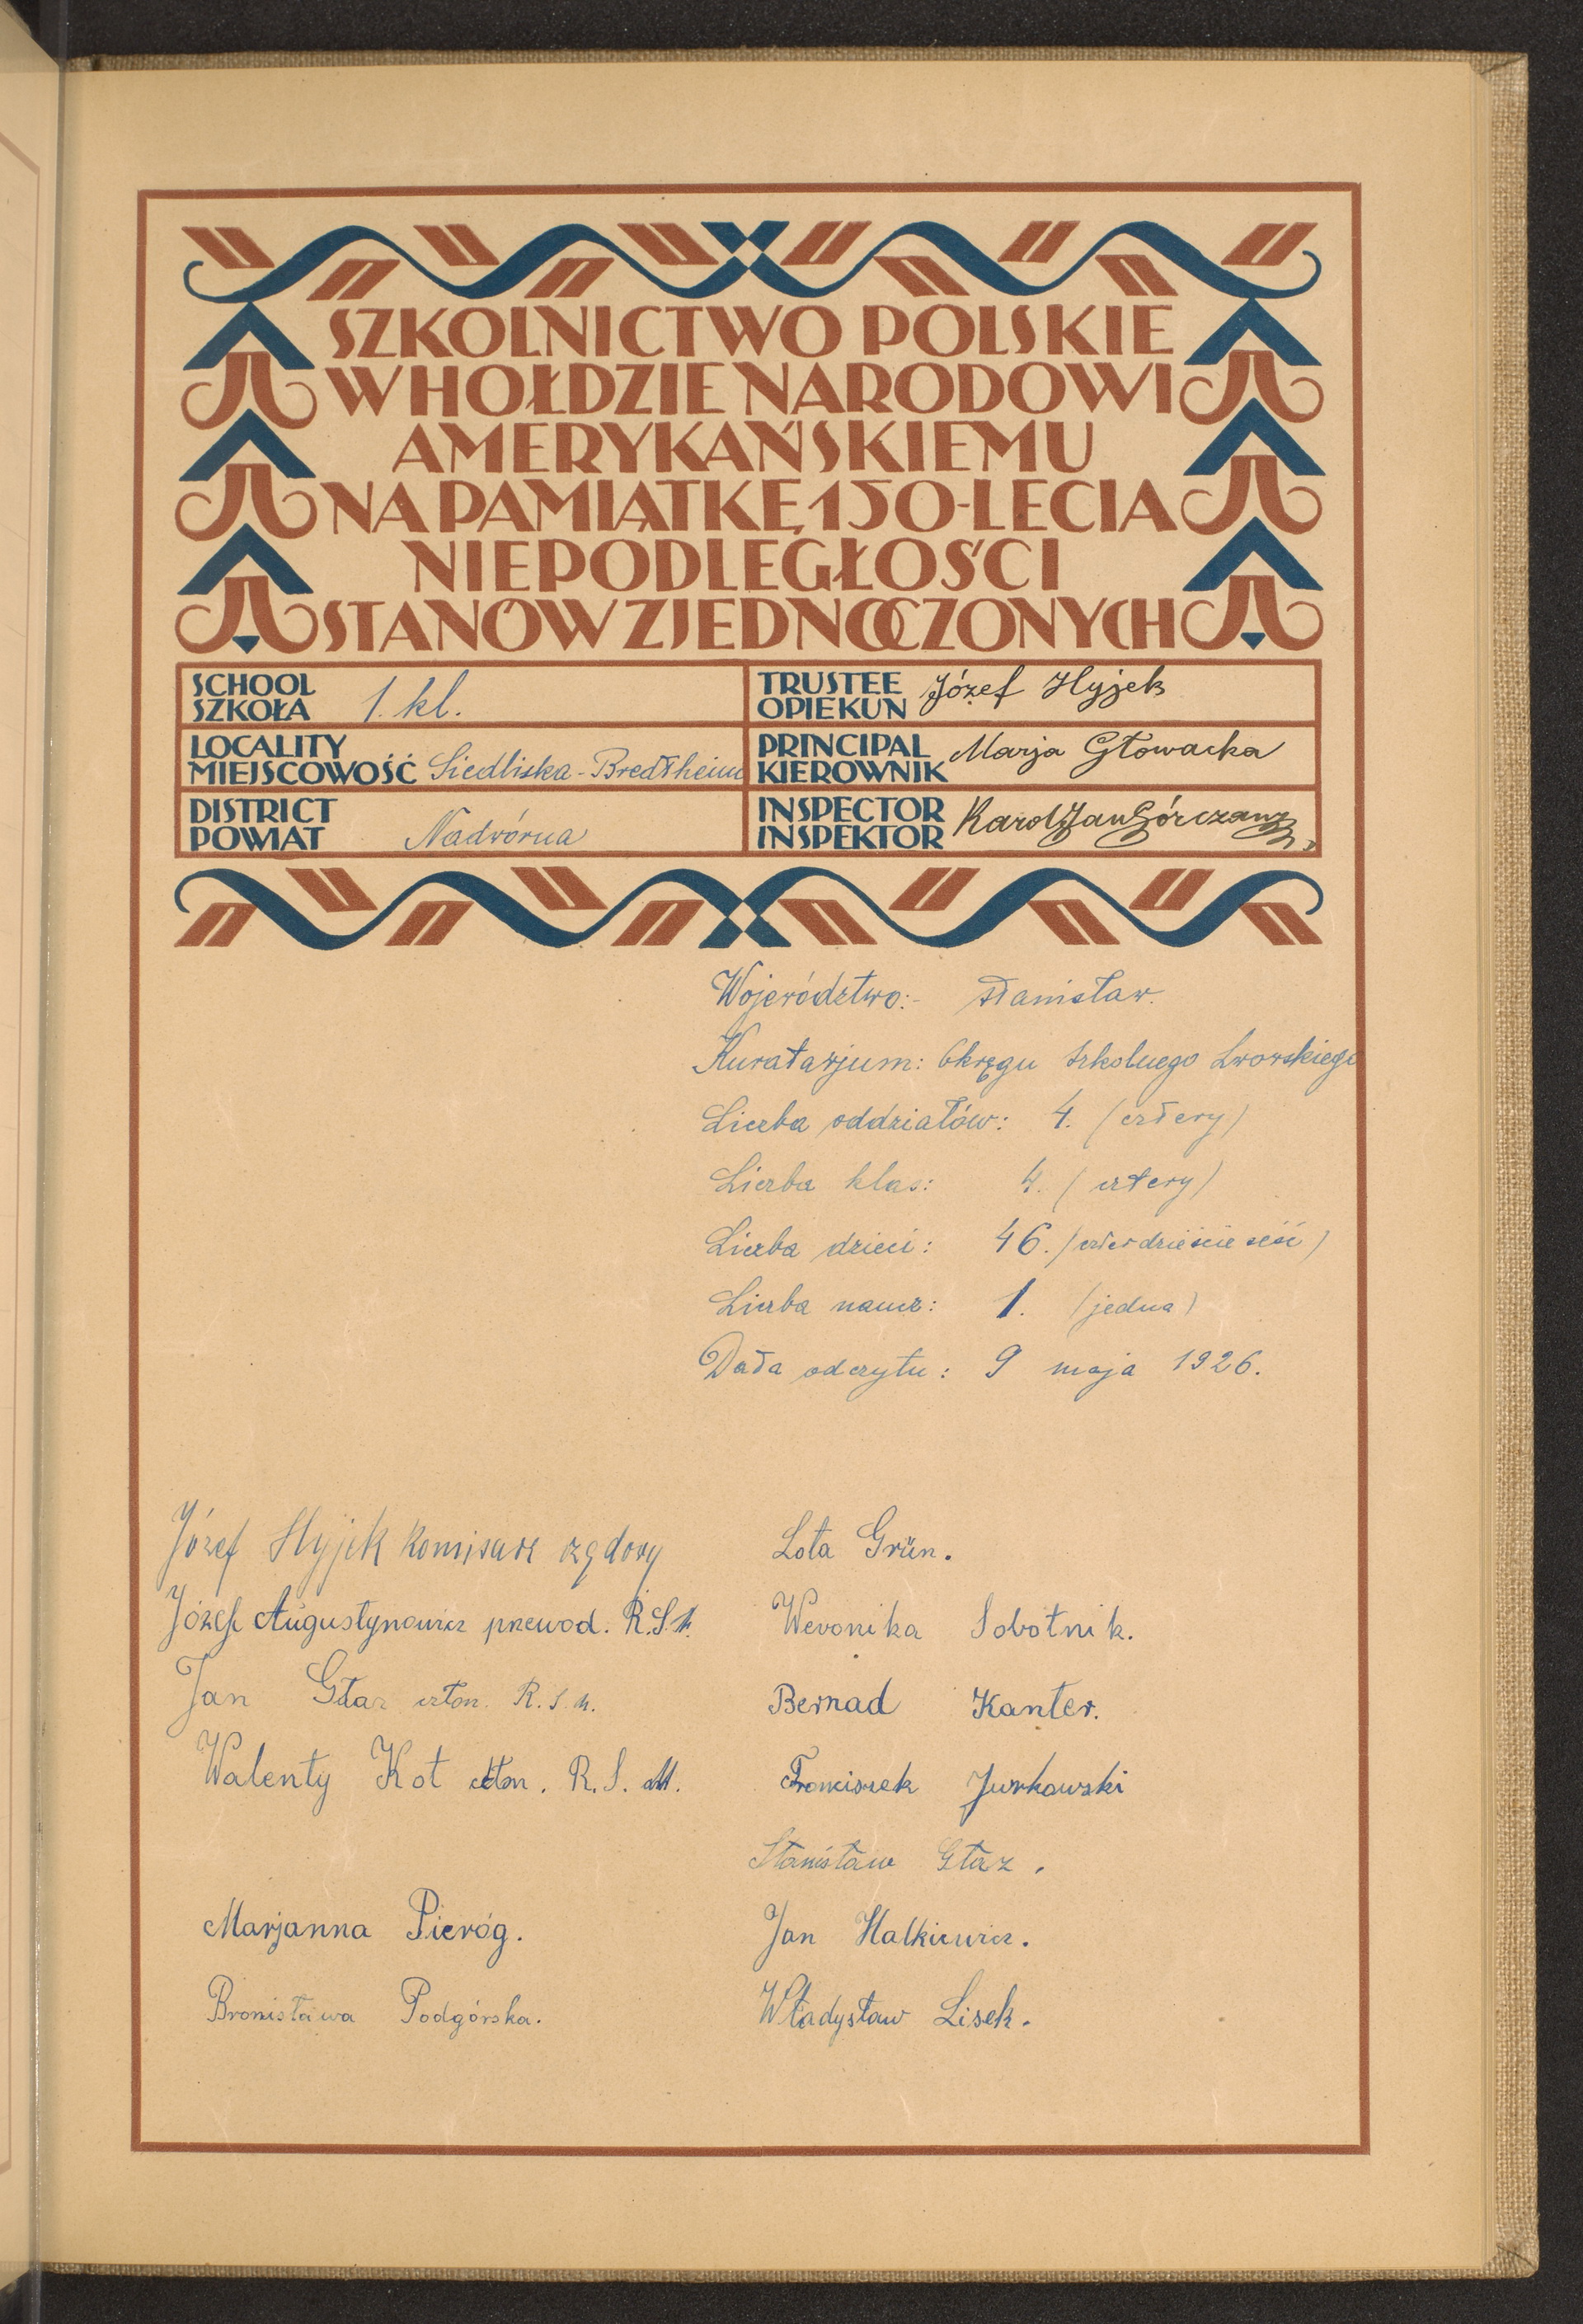 SZKOLNICTWO POLSKIE
W HOŁDZIE NARODOWI
AMERYKAŃSKIEMU
NA PAMIĄTKĘ 150-LECIA
NIEPODLEGŁOŚCI
STANÓW ZJEDNOCZONYCH
SCHOOL
SZKOŁA 1. kl.
TRUSTEE
OPIEKUN Józef Hyjek
LOCALITY
MIEJSCOWOŚĆ Siedliska-Bredtheim
PRINCIPAL
KIEROWNIK Marja Głowacka
DISTRICT
POWIAT Nadwórna
INSPECTOR
INSPEKTOR Karol Jan Górczany
Województwo:- Stanisław.
Kuratarjum: Okręgu Szkolnego Lwowskiego
Liczba oddziałów: 4. (cztery)
Liczba klas: 4. (cztery)
Liczba dzieci: 46.
Liczba naucz: 1. (jedna)
Data odczytu: 9 maja 1926.
Józef Hyjek Komisarz rządowy
Józef Augustynowicz przewod. R.S.M.
Jan Głaz człon. R.S.M.
Walenty Kot człon. R.S.M.
Marjanna Pieróg.
Bronisława Podgórska.
Lota Grün.
Weronika Sobotnik.
Bernad Kanter.
Franciszek Jurkowski
Stanisław Głaz.
Jan Halkiewicz.
Władysław Lisek.